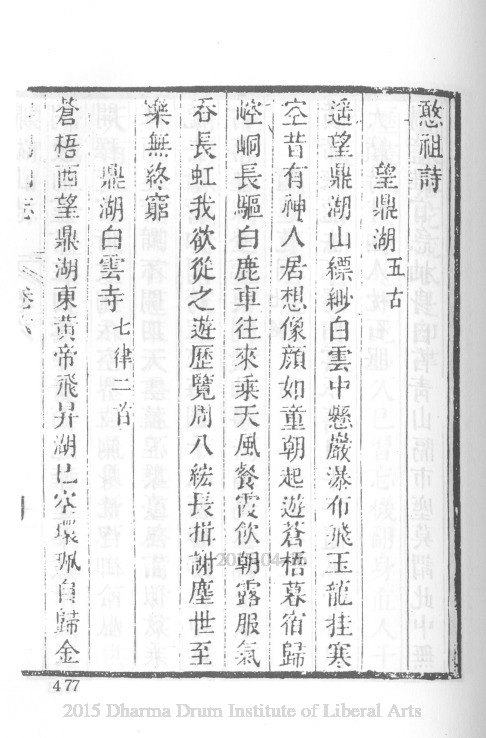 憨祖詩
望鼎湖 五古
遥望鼎湖山縹緲白雲中懸巖瀑布飛玉龍挂寒
空昔有神人居想像顔如童朝起遊蒼梧暮宿歸
崆峒長驅白鹿車往來乘天風餐霞飲朝露服氣
吞長虹我欲從之遊歷覽周八紘長揖謝塵世至
樂無終窮
鼎湖白雲寺 七律二首
蒼梧西望鼎湖東黃帝飛昇湖已空環珮自歸金
477
2015 Dharma Drum Institute of Liberal Arts